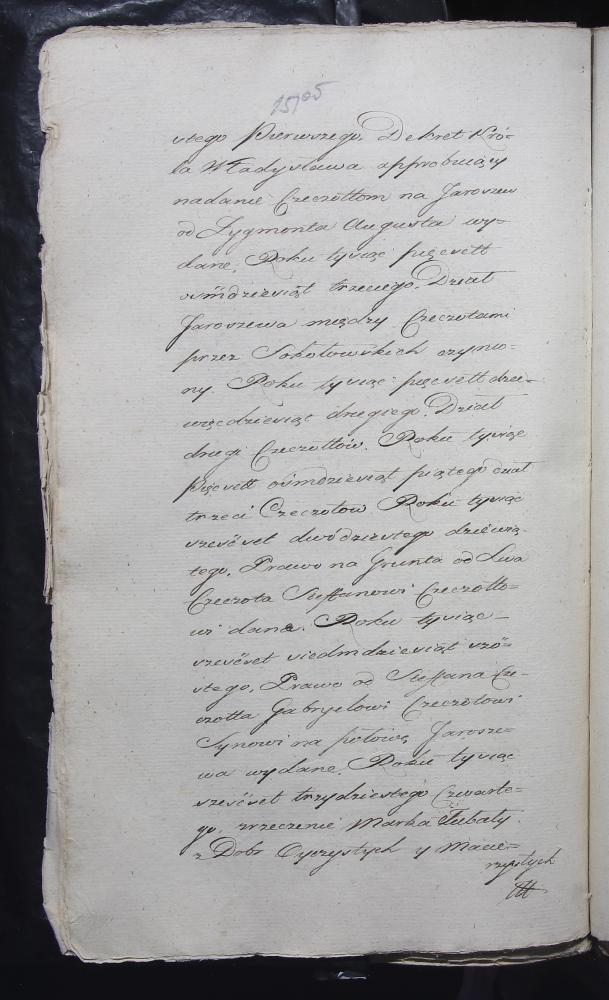 stego Pierwszego. Dekret Kró=
la Władysława approbuiący
nadanie Czeczottom na Jaroszew
od Zygmonta Augusta wy=
dane. Roku tysiąc pięcsett
osmdziesiąt trzeciego. Dział
Jaroszewa między Czeczotami
przez Sokołowskich czynio=
ny. Roku tysiąc pięcsett dzie=
więcdziesiąt drugiego. Dział
drugi Czeczottów. Roku tysiąc
pięcsett osmdziesiąt piątego dział
trzeci Czeczotow Roku tysiąc
szescset dwódziestego dziewią=
tego. Prawo na Grunta od Lwa
Czeczota Steffanowi Czeczotto=
wi dane. Roku tysiąc=
szescset siedmdziesiąt szó=
stego. Prawo od Steffana Cze=
czotta Gabryelowi Czeczotowi
Synowi na połowę Jarosze=
wa wydane. Roku tysiąc
szescset trzydziestego Czwarte=
go. zrzeczenie Marka
z Dobr Oyczystych y Macie=
rzystych